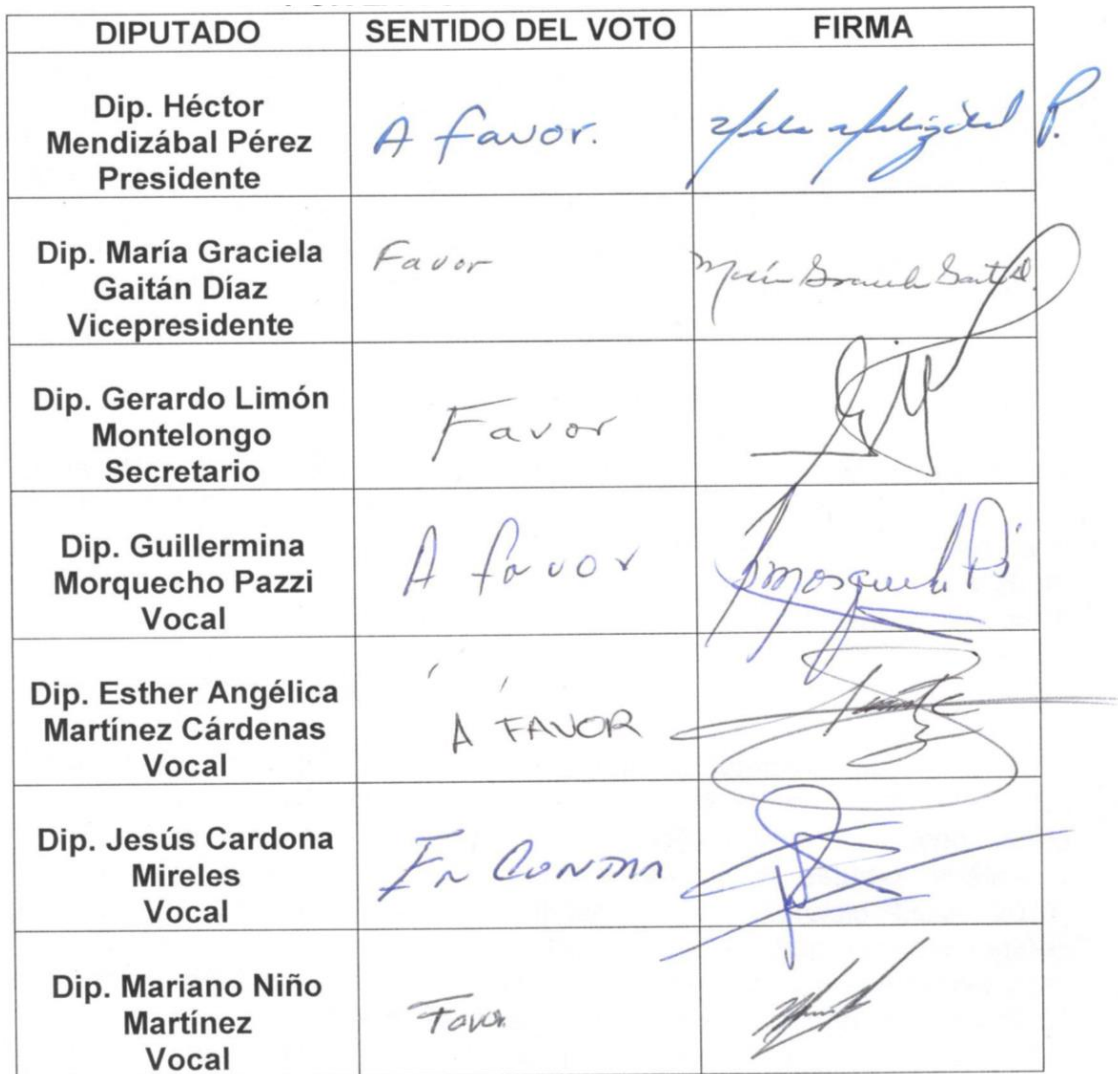 DIPUTADO SENTIDO DEL VOTO FIRMA
Dip. Héctor
Mendizábal Pérez
Presidente
A favor.
Dip. María Graciela
Gaitán Díaz
Vicepresidente
Favor
María Graciela
Dip. Gerardo Limón
Montelongo
Secretario
Favor
Dip. Guillermina
Morquecho Pazzi
Vocal
A favor
Dip. Esther Angélica
Martínez Cárdenas
Vocal
A FAVOR
Dip. Jesús Cardona
Mireles
Vocal
En Contra
Dip. Mariano Niño
Martínez
Vocal
Favor